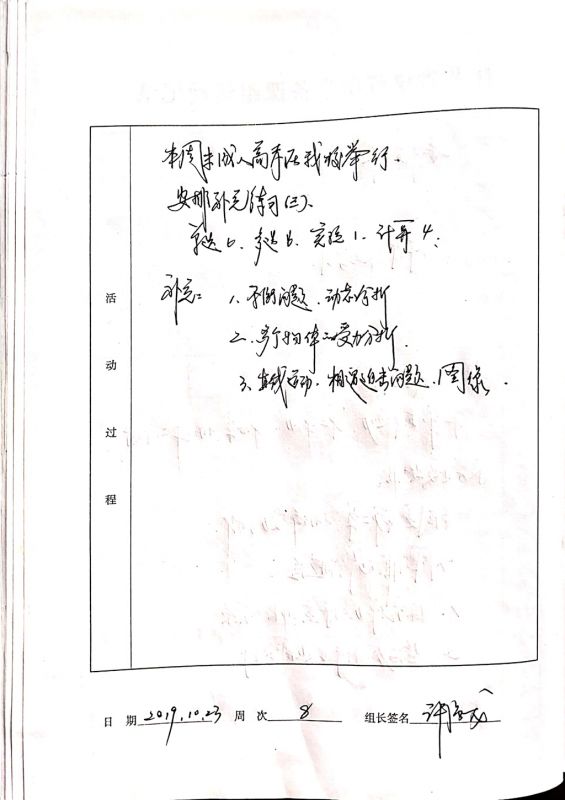 本周末成人高考在我校举行.
安排补充练习(三)、
单选6、多选6、实验1、计算4;
补充: 1、平衡问题、动态分析
2、多个物体的受力分析.
3、直线运动、相遇追击问题、图像.
活动过程
日 期 2019.10.23 周 次 8 组长签名